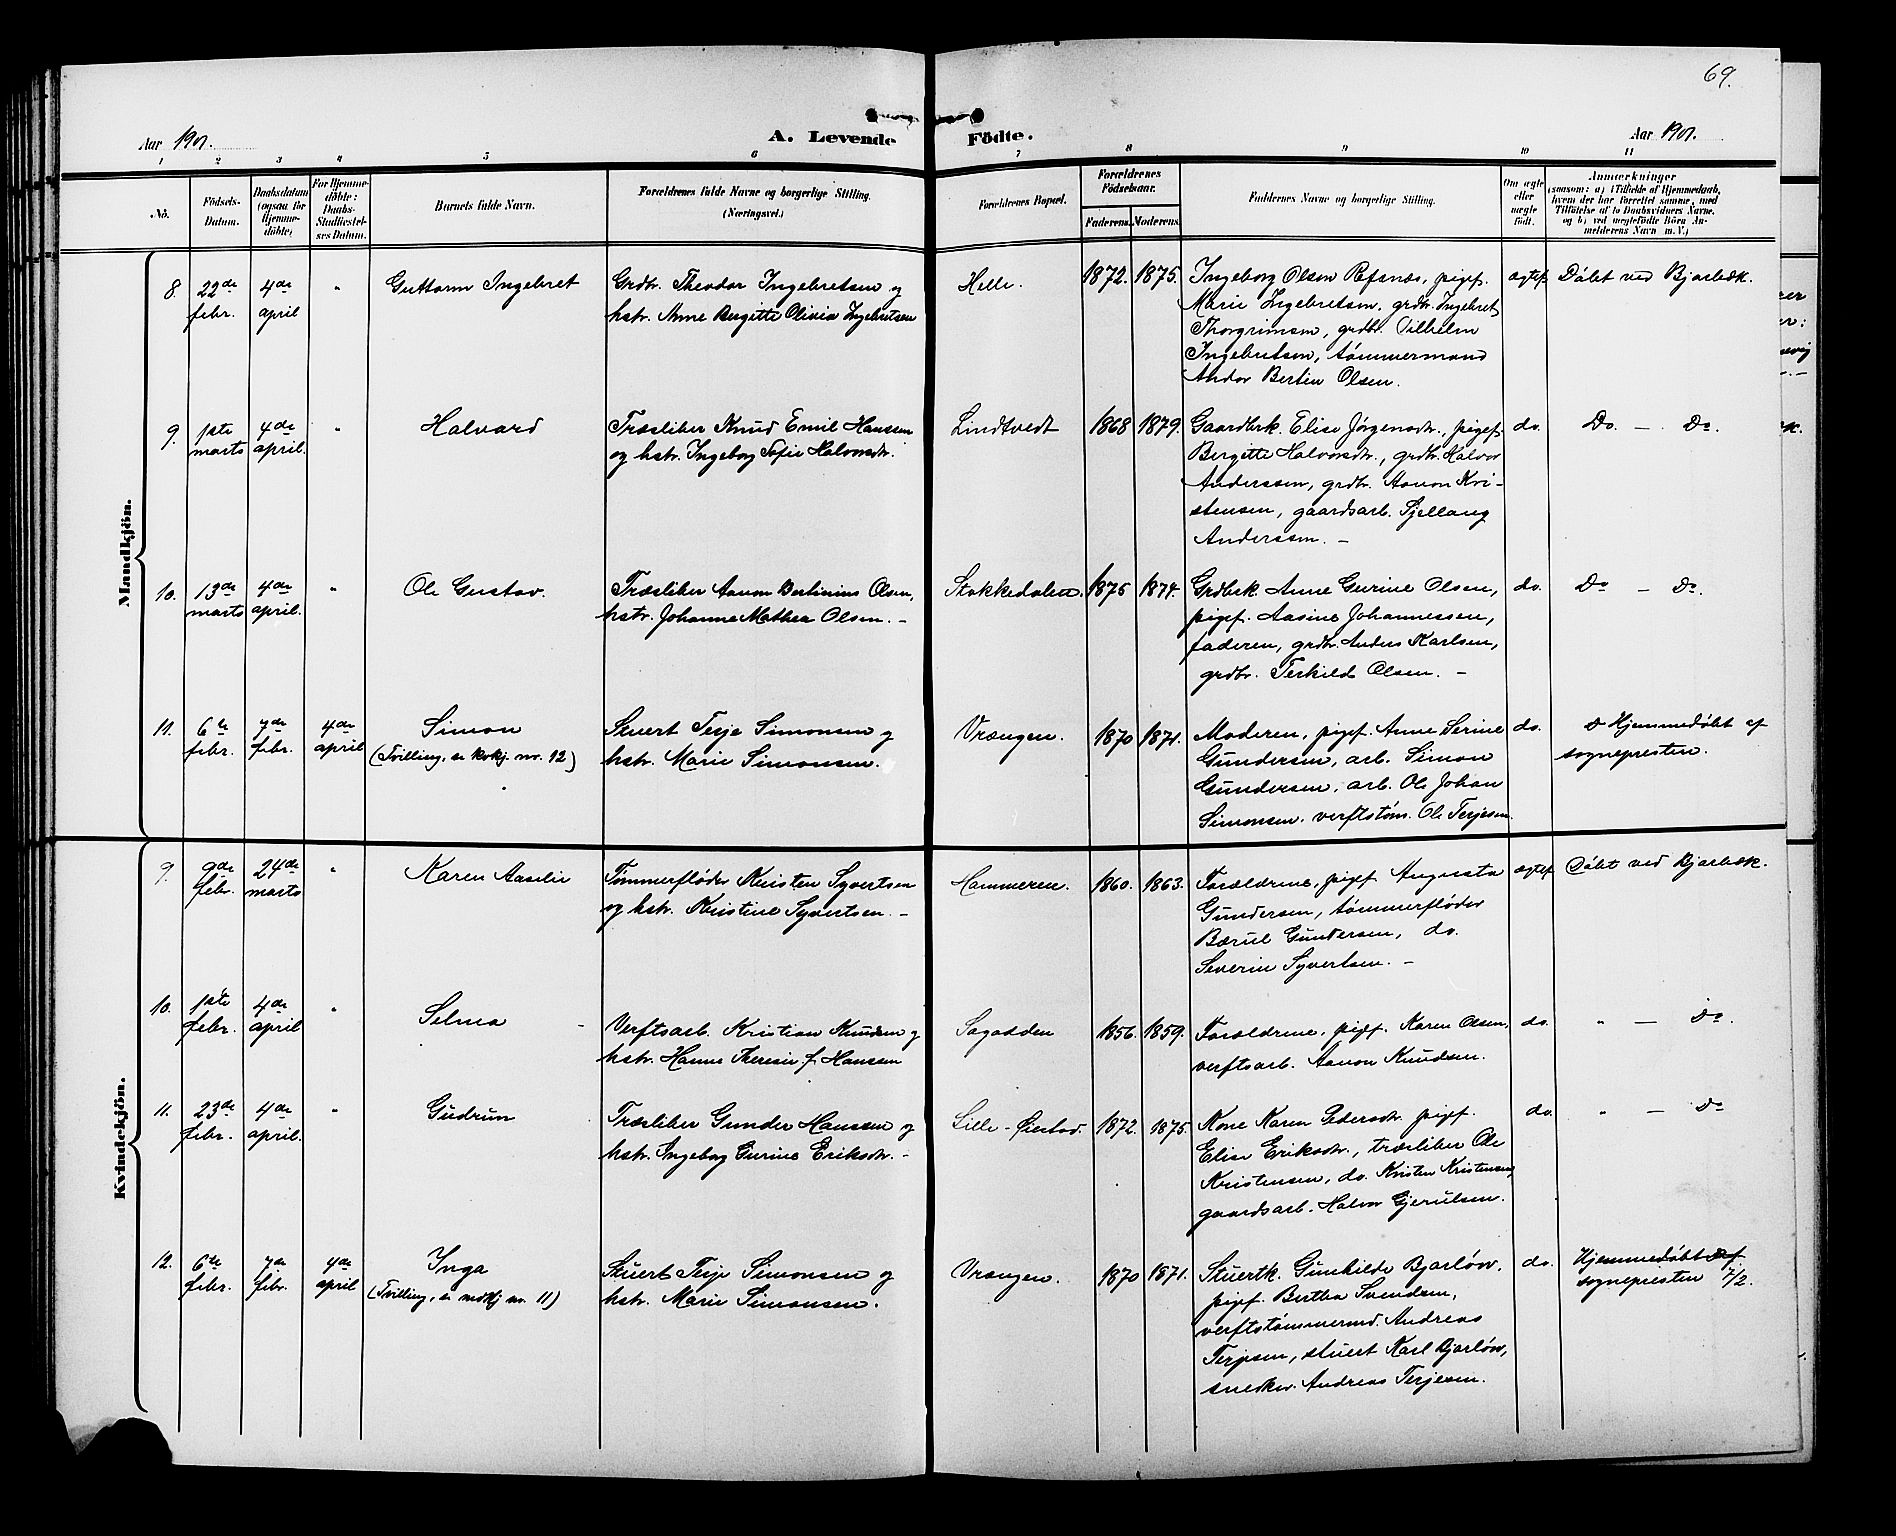 69.
Aar 1901.
A. Levende Födte.
Aar 1901.
1 2 3 4 5 6 7 8 9 10 11
No.
Födsels-
Datum.
Daabsdatum
(ogsaa for
Hjemme-
döbte)
For Hjemme-
döbte:
Daabs-
Stadfæstel-
ses Datum.
Barnets fulde Navn.
Forældrenes fulde Navne og borgerlige Stilling.
(Næringsvei.)
Forældrenes Bopæl.
Forældrenes
Födselsaar.
Faderens.
Moderens.
Faddernes Navne og borgerlige Stilling.
Om ægte
eller
uægte
födt.
Anmærkninger
(saasom: a) i Tilfælde af Hjemmedaab,
hvem der har forrettet samme, med
Tilföielse af to Daabsvidners Navne,
og b) ved uægtefödte Börn An-
melderens Navn m. V.)
Mandkjön.
8.
22de
febr.
4de
april
"
Guttorm Ingebret
Grdbr. Theodor Ingebretsen og
hstr. Anne Birgitte Olivia Ingebretsen
Helle.
1872.
1875.
Ingeborg Olsen Refsnæs, pigef.
Marie Ingebretsen, grdbr. Ingebret
Thorgrimsen, grdbr. Vilhelm
Ingebretsen, tømmermand
Andor Bertin Olsen.
ægtef.
Døbt ved Bjorbæk.
9.
1ste
marts
4de
april.
"
Halvard
Træsliber Knud Emil Hanssen
og hstr. Ingeborg Sofie Halvorsdtr.
Lindtvedt
1868
1879.
Gaardbrk. Elise Jørgensdtr., pigef.
Bergitte Halvorsdtr., grdbr. Halvor
Anderssen, grdbr. Aanon Kri-
stensen, gaardsarb. Tjellaug
Anderssen. –
do.
Do. – Do.
10.
13de
marts
4de
april.
"
Ole Gustav.
Træsliber Aanon Bertinius Olsen,
hstr. Johanne Mathea Olsen. –
Stokkedalen.
1875
1874.
Grdbrk. Anne Gurine Olsen,
pigef. Aasine Johannessen,
faderen, grdbr. Anders Karlsen,
grdbr. Terkild Olsen. –
do.
Do – Do.
11.
6te
febr.
7de
febr.
4de
april
Simon
(Tvilling, se kvkj. nr. 12)
Stuert Terje Simonsen og
hstr. Marie Simonsen.
Vrængen.
1870
1871.
Moderen, pigef. Anne Serine
Gundersen, arb. Simon
Gundersen, arb. Ole Johan
Simonsen. verftstøm. Ole Terjesen.
do.
Hjemmedøbt af
sognepresten.
Kvindekjön.
9.
9de
febr.
24de
marts
"
Karen Aaselie
Tømmerfløder Kristen Syvertsen
og hstr. Kristine Syvertsen. –
Hammeren.
1860.
1863.
Forældrene, pigef. Augusta
Gundersen, tømmerfløder
Bærul Gundersen, do.
Severin Syvertsen. –
ægtef.
Døbt ved Bjorbæk.
10.
1ste
febr.
4de
april
"
Selma
Verftsarb. Kristian Knudsen og
hstr. Hanne Theresie f. Hansen
Sagodden
1856.
1859.
Forældrene, pigef. Karen Olsen,
verftsarb. Aanon Knudsen.
do.
" – Do.
11.
23de
febr.
4de
april.
"
Gudrun
Træsliber Gunder Hanssen og
hstr. Ingeborg Gurine Eriksdtr. –
Lille-Øiestad.
1872.
1875.
Kone Karen Pedersdtr. pigef.
Elise Eriksdtr., træsliber Ole
Kristensen, do. Kristen Kristensen,
gaardsarb. Halvor Gjerulsen.
do.
" – Do
12.
6te
febr.
7de
febr.
4de
april
Inga
(Tvilling, se mdkj nr. 11)
Stuert Terje Simonsen og
hstr. Marie Simonsen.
Vrængen.
1870
1871.
Stuertk. Gunhilde Bjorløw,
pigef. Bertha Svendsen,
verftstømmermd. Andreas
Terjesen, stuert Karl Bjorløw,
snedker. Andreas Terjesen.
do.
Hjemmedøbt af
sognepresten 7/2.